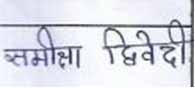 समीक्षा द्विवेदी